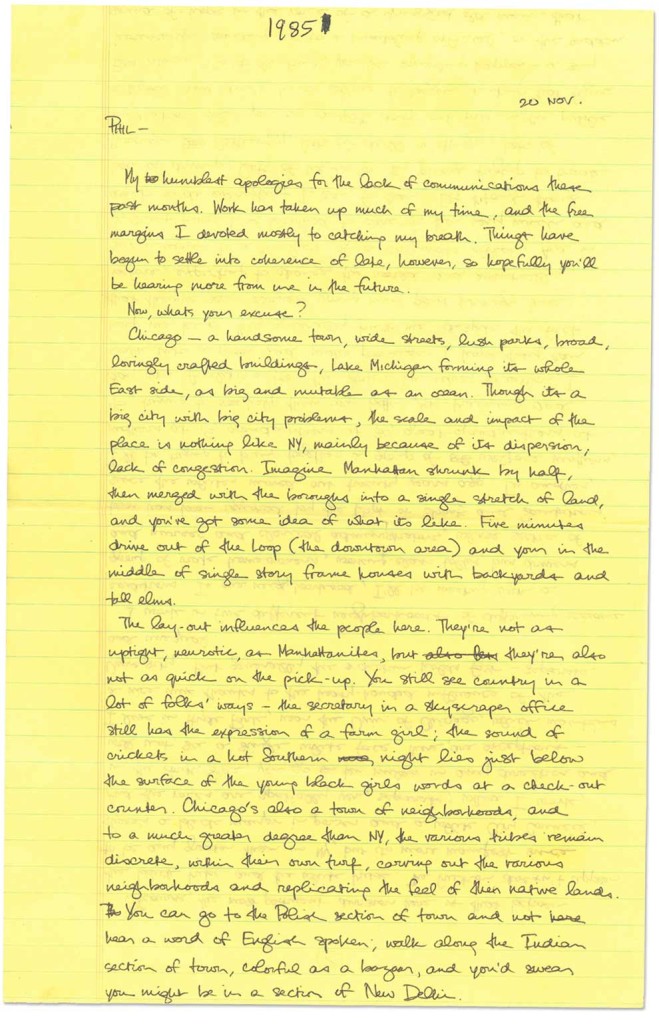 1985
20 NOV.
PHIL—
My humblest apologies for the lack of communications these
past months. Work has taken up much of my time, and the free
margins I devoted mostly to catching my breath. Things have
begun to settle into coherence of late, however, so hopefully you'll
be hearing more from me in the future.
Now, whats your excuse?
Chicago — a handsome town, wide streets, lush parks, broad,
lovingly crafted buildings, Lake Michigan forming its whole
East side, as big and mutable as an ocean. Though its a
big city with big city problems, the scale and impact of the
place is nothing like NY, mainly because of its dispersion,
lack of congestion. Imagine Manhattan shrunk by half,
then merged with the boroughs into a single stretch of land,
and you've got some idea of what its like. Five minutes
drive out of the Loop (the downtown area) and your in the
middle of single story frame houses with backyards and
tall elms.
The lay-out influences the people here. They're not as
uptight, neurotic, as Manhattanites, but also less they're also
not as quick on the pick-up. You still see country in a
lot of folks' ways – the secretary in a skyscraper office
still has the expression of a farm girl; the sound of
crickets in a hot Southern night lies just below
the surface of the young black girls words at a check-out
counter. Chicago's also a town of neighborhoods, and
to a much greater degree than NY, the various tribes remain
discrete, within their own turf, carving out the various
neighborhoods and replicating the feel of their native lands.
You can go to the Polish section of town and not here
hear a word of English spoken; walk along the Indian
section of town, colorful as a bazaar, and you'd swear
you might be in a section of New Delhi.